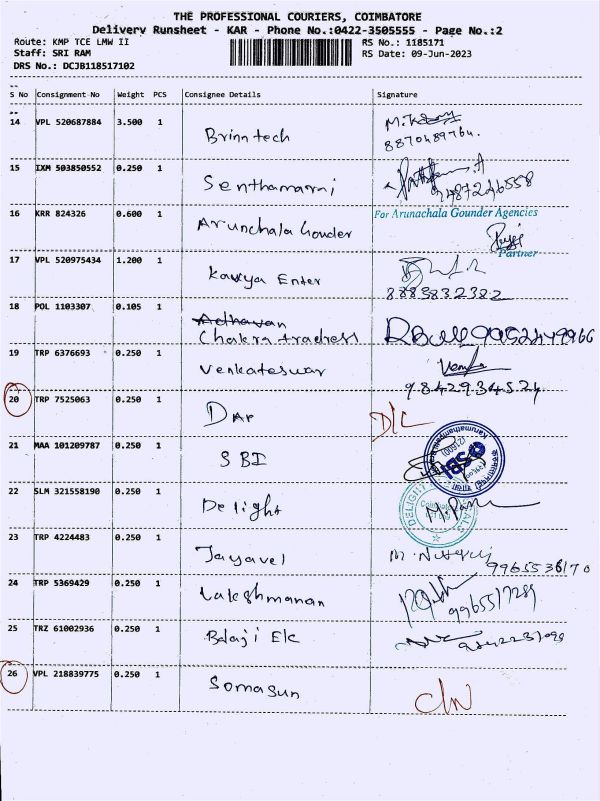 THE PROFESSIONAL COURIERS, COIMBATORE
Delivery Runsheet - KAR - Phone No.:0422-3505555 - Page No.:2
Route: KMP TCE LMW II RS No.: 1185171
Staff: SRI RAM RS Date: 09-Jun-2023
DRS No.: DCJB118517102
S No Consignment No Weight PCS Consignee Details Signature
14 VPL 520687884 3.500 1 Brinntech
8870489764.
15 IXM 503850552 0.250 1 Senthamarni
9487246558
16 KRR 824326 0.600 1 Arunchala Gounder For Arunachala Gounder Agencies
Partner
17 VPL 520975434 1.200 1 Kavya Enter
8883832382
18 POL 1103307 0.105 1 Adhavan
Chakra tradress
19 TRP 6376693 0.250 1 Venkateswar
9842934524
20 TRP 7525063 0.250 1 DAP D/L
21 MAA 101209787 0.250 1 SBI
22 SLM 321558190 0.250 1 Delight
23 TRP 4224483 0.250 1 Jayavel
9965536170
24 TRP 5369429 0.250 1 Lakshmanan
9965517289
25 TRZ 61002936 0.250 1 Balaji Elc
26 VPL 218839775 0.250 1 Somasun